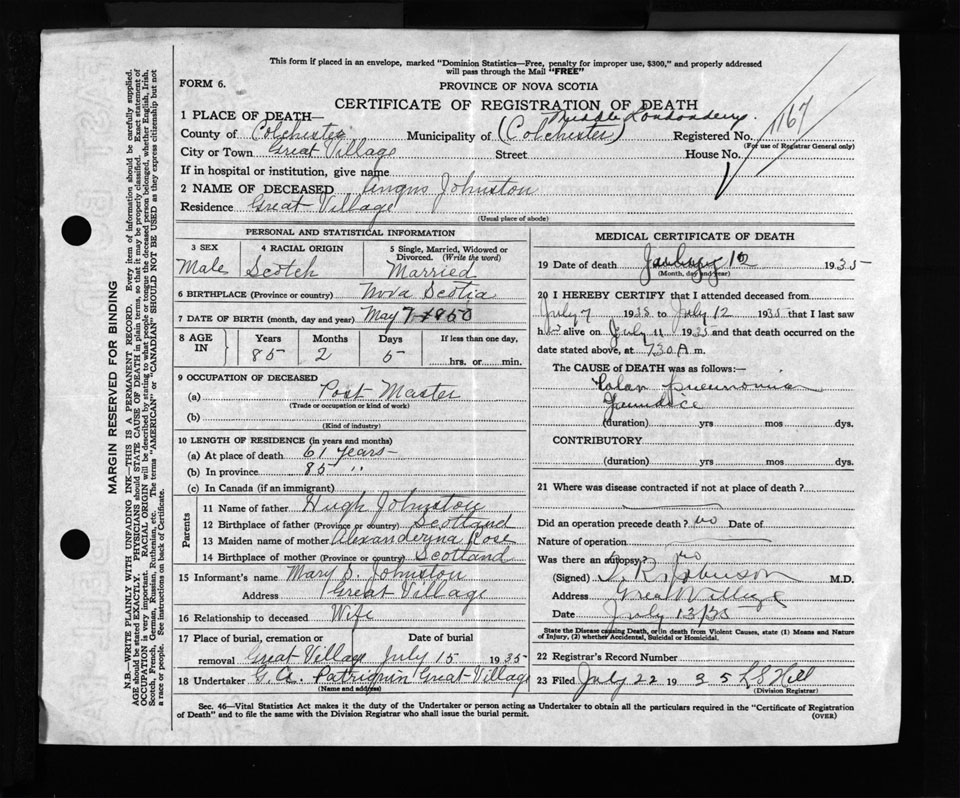 This form if placed in an envelope, marked "Dominion Statistics—Free, penalty for improper use, $300," and properly addressed
will pass through the Mail "FREE"
FORM 6.
PROVINCE OF NOVA SCOTIA
CERTIFICATE OF REGISTRATION OF DEATH
1 PLACE OF DEATH— Middle Londonderry.
County of Colchester Municipality of (Colchester) Registered No. 1167
(For use of Registrar General only)
City or Town Great Village Street House No.
If in hospital or institution, give name
2 NAME OF DECEASED Angus Johnston
Residence Great Village
(Usual place of abode)
PERSONAL AND STATISTICAL INFORMATION
3 SEX 4 RACIAL ORIGIN 5 Single, Married, Widowed or
Divorced. (Write the word)
Male Scotch Married
6 BIRTHPLACE (Province or country) Nova Scotia
7 DATE OF BIRTH (month, day and year) May 7 1850
8 AGE IN Years Months Days If less than one day,
85 2 5 hrs. or min.
9 OCCUPATION OF DECEASED
(a) Post Master
(Trade or occupation or kind of work)
(b)
(Kind of industry)
10 LENGTH OF RESIDENCE (in years and months)
(a) At place of death 61 years
(b) In province 85 "
(c) In Canada (if an immigrant)
Parents
11 Name of father Hugh Johnston
12 Birthplace of father (Province or country) Scotland
13 Maiden name of mother Alexanderyna Rose
14 Birthplace of mother (Province or country) Scotland
15 Informant's name Mary S. Johnston
Address Great Village
16 Relationship to deceased Wife
17 Place of burial, cremation or Date of burial
removal Great Village July 15 1935
18 Undertaker G. A. Patriquin Great Village
(Name and address)
MEDICAL CERTIFICATE OF DEATH
19 Date of death July 12 1935
(Month, day and year)
20 I HEREBY CERTIFY that I attended deceased from
July 7 1935 to July 12 1935 that I last saw
him alive on July 11 1935 and that death occurred on
date stated above, at 7 30 A m.
The CAUSE OF DEATH was as follows:—
pneumonia
Jaundice
(duration) yrs mos dys.
CONTRIBUTORY
(duration) yrs mos dys.
21 Where was disease contracted if not at place of death?
Did an operation precede death? no Date of
Nature of operation
Was there an autopsy? no
(Signed) T. R. Johnson M.D.
Address Great Village
Date July 13/35
State the Disease causing Death, or in death from Violent Causes, state (1) Means and Nature
of Injury, (2) whether Accidental, Suicidal or Homicidal.
22 Registrar's Record Number
23 Filed July 22 1935 L S Hill
(Division Registrar)
Sec. 46—Vital Statistics Act makes it the duty of the Undertaker or person acting as Undertaker to obtain all the particulars required in the "Certificate of Registration
of Death" and to file the same with the Division Registrar who shall issue the burial permit.
(OVER)
MARGIN RESERVED FOR BINDING
N.B.—WRITE PLAINLY WITH UNFADING INK—THIS IS A PERMANENT RECORD. Every item of information should be carefully supplied.
AGE should be stated EXACTLY. PHYSICIANS should STATE CAUSE OF DEATH in plain terms, so that it may be properly classified. Exact statement of
OCCUPATION is very important. RACIAL ORIGIN will be described by stating to what people or tongue the deceased person belonged, whether English, Irish,
Scotch, French, German, Russian, Ruthenian, etc. The terms "AMERICAN" or "CANADIAN" SHOULD NOT BE USED as they express citizenship but not
a race or people. See instructions on back of Certificate.